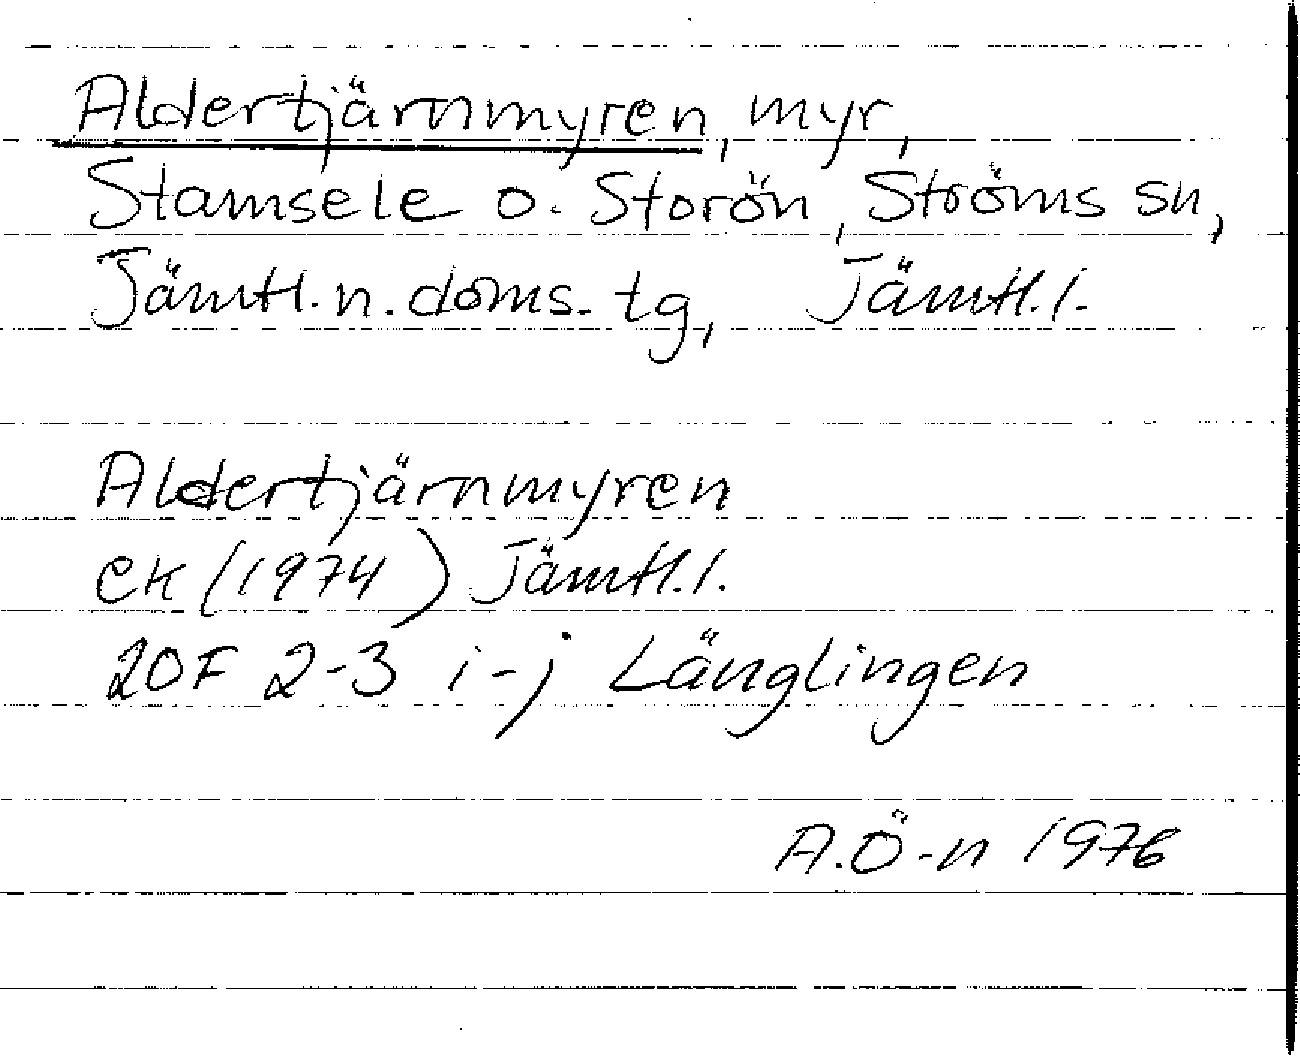 Aldertjärnmyren, myr,
Stamsele o. Storön, Ströms sn,
Jämtl. n. doms. tg, Jämtl. l.
Aldertjärnmyren
ek (1974) Jämtl. l.
20F 2-3 i-j Länglingen
A.Ö-n 1976